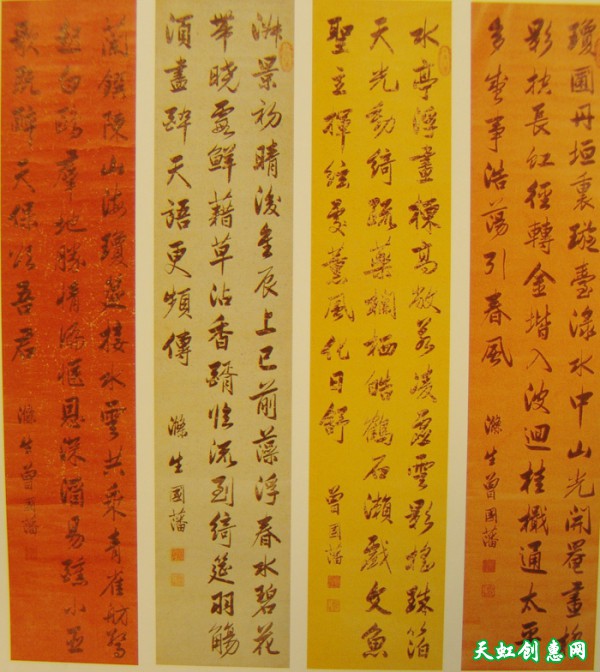 瓊圃丹垣裏璇臺淥水中山光開罨畫橋
影扶長虹徑轉金堦入波迴桂檝通太平
多樂事浩蕩引春風 滌生曾國藩
水亭浮畫棟高敞若凌虛雲影搖珠箔
天光動綺疏藥欄栖皓鶴石瀨戲文魚
聖主揮絃處薰風化日舒 曾國藩
淑景初晴後皇辰上巳前藻浮春水碧花
帶曉霞鮮藉草沾香醑流到綺筵羽觴
須盡醉天語更頻傳 滌生國藩
蘭饌陳山海瓊筵接水雲共乘青雀舫驚
起白鷗羣地勝情彌愜恩深酒易醺小臣
歌既醉天保頌吾君 滌生曾國藩
天虹创惠网